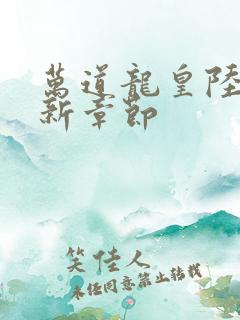 萬道龍皇陸
新章節
笑佳人
未经同意禁止转载